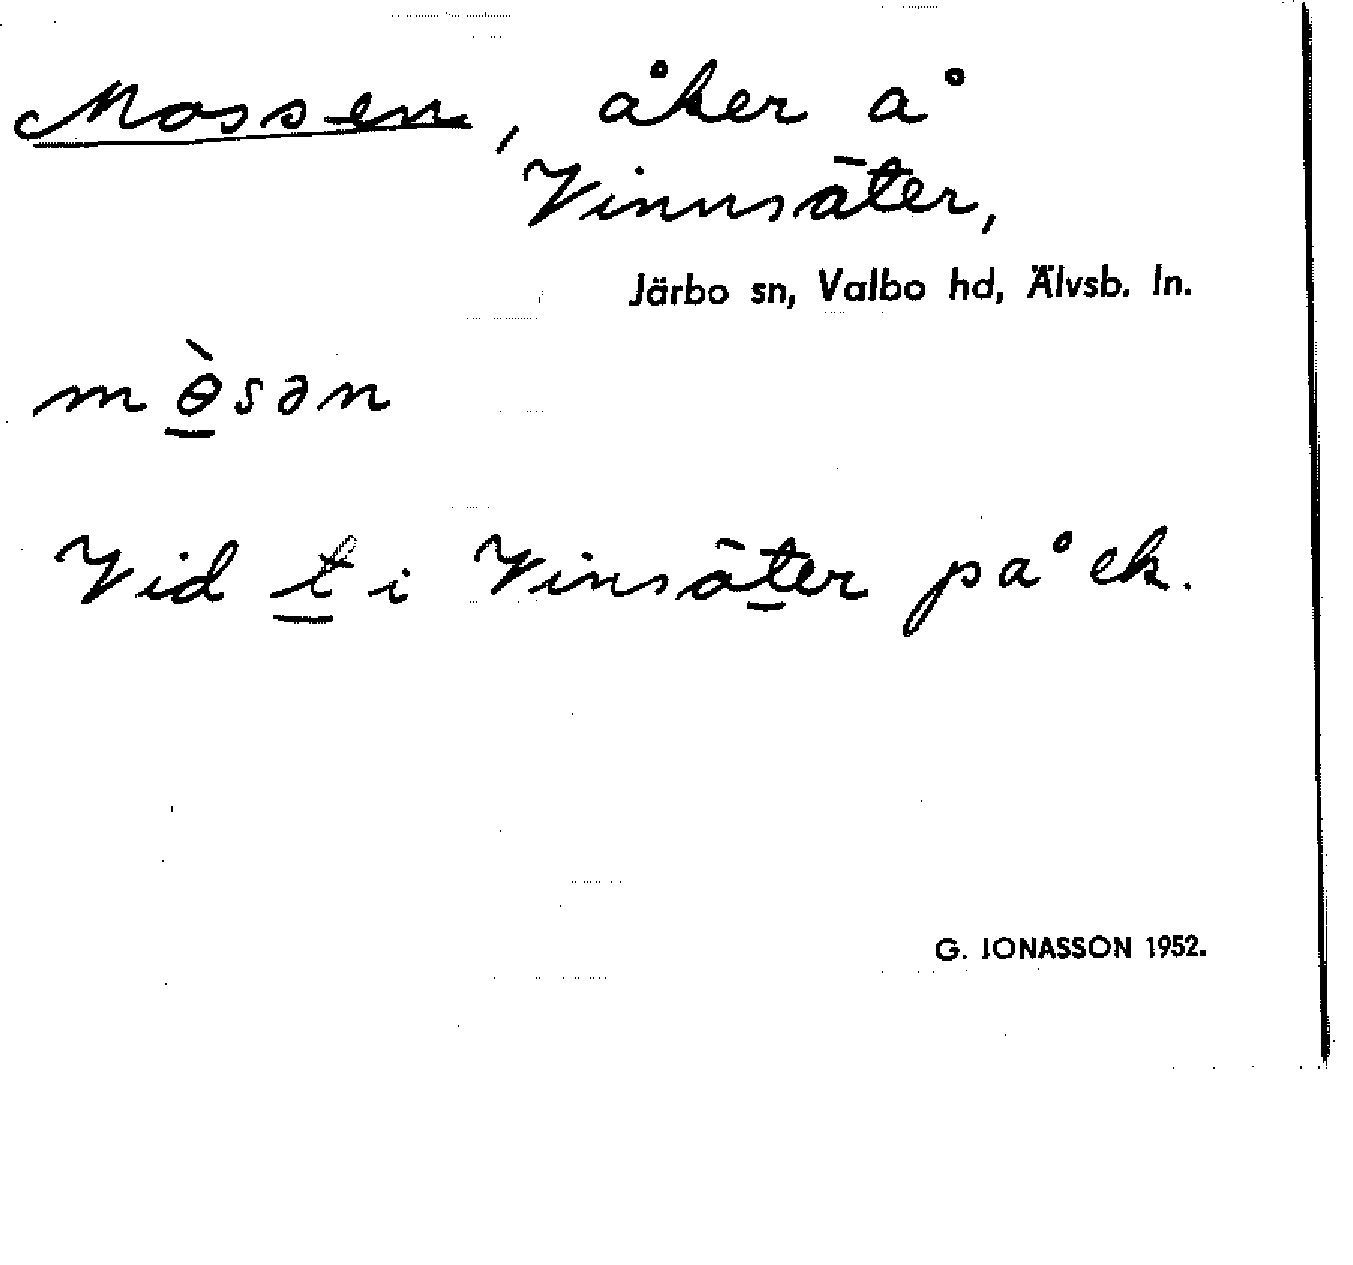 Mossen, åker å
Vinnsäter,
Järbo sn, Valbo hd, Älvsb. ln.
mɵ̀sən
Vid t i Vinsäter på ek.
G. JONASSON 1952.